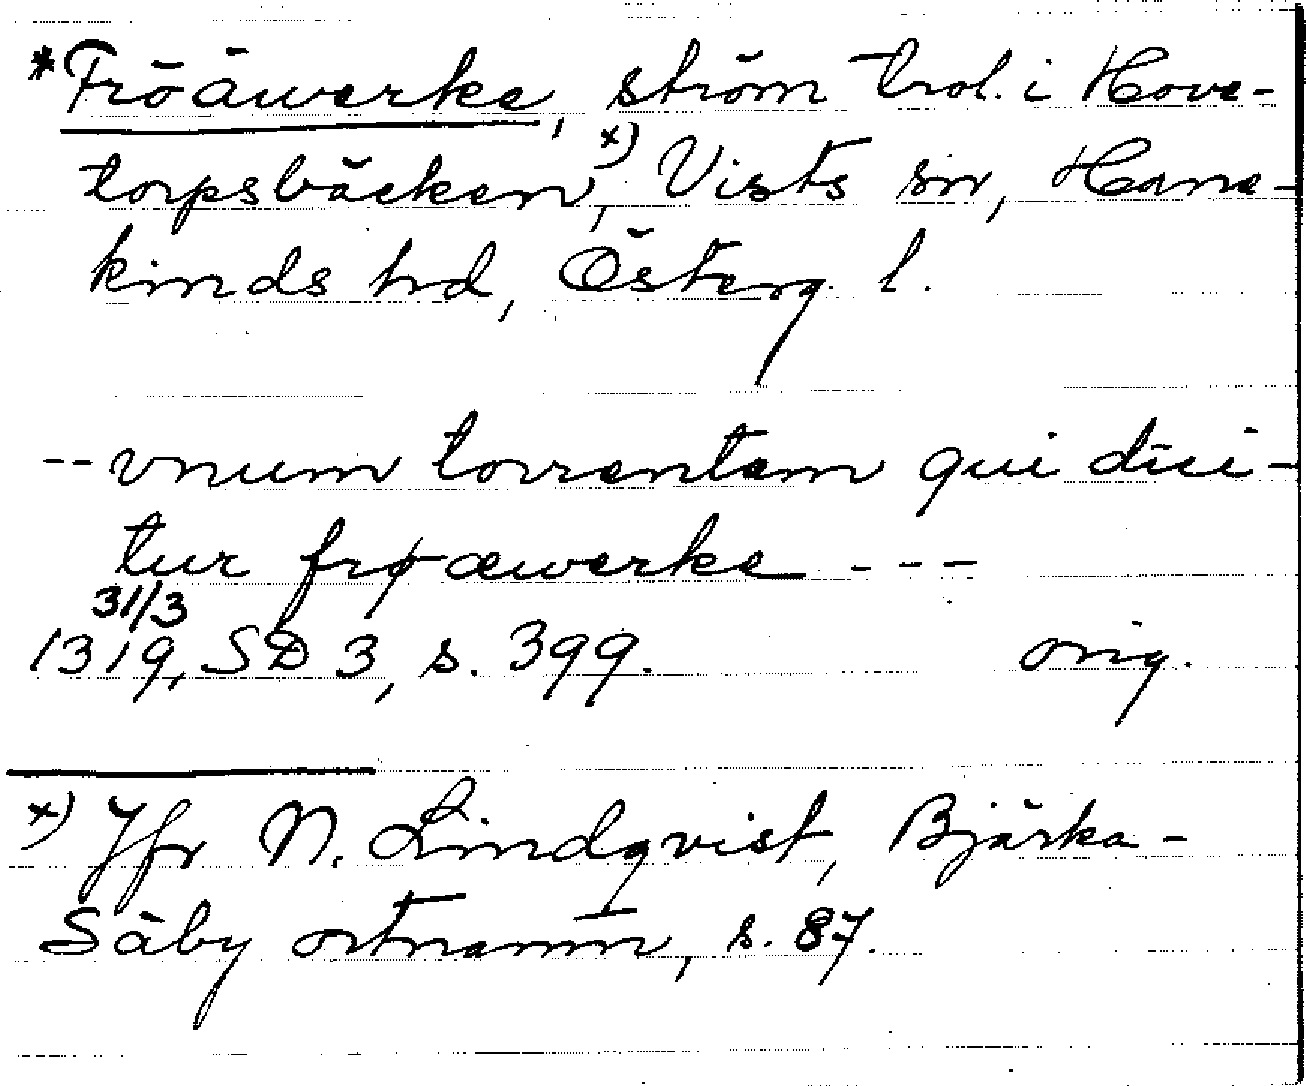 *Fröäwerke, ström trol. i Hove-
torpsbäcken,x) Vists sn, Hane-
kinds hd, Österg. l.
--vnum torrentem qui dici-
tur frøæwerke ---
31/3
1319, SD 3, s. 399. orig.
x) Jfr N. Lindqvist, Bjärka-
Säby ortnamn, s. 87.